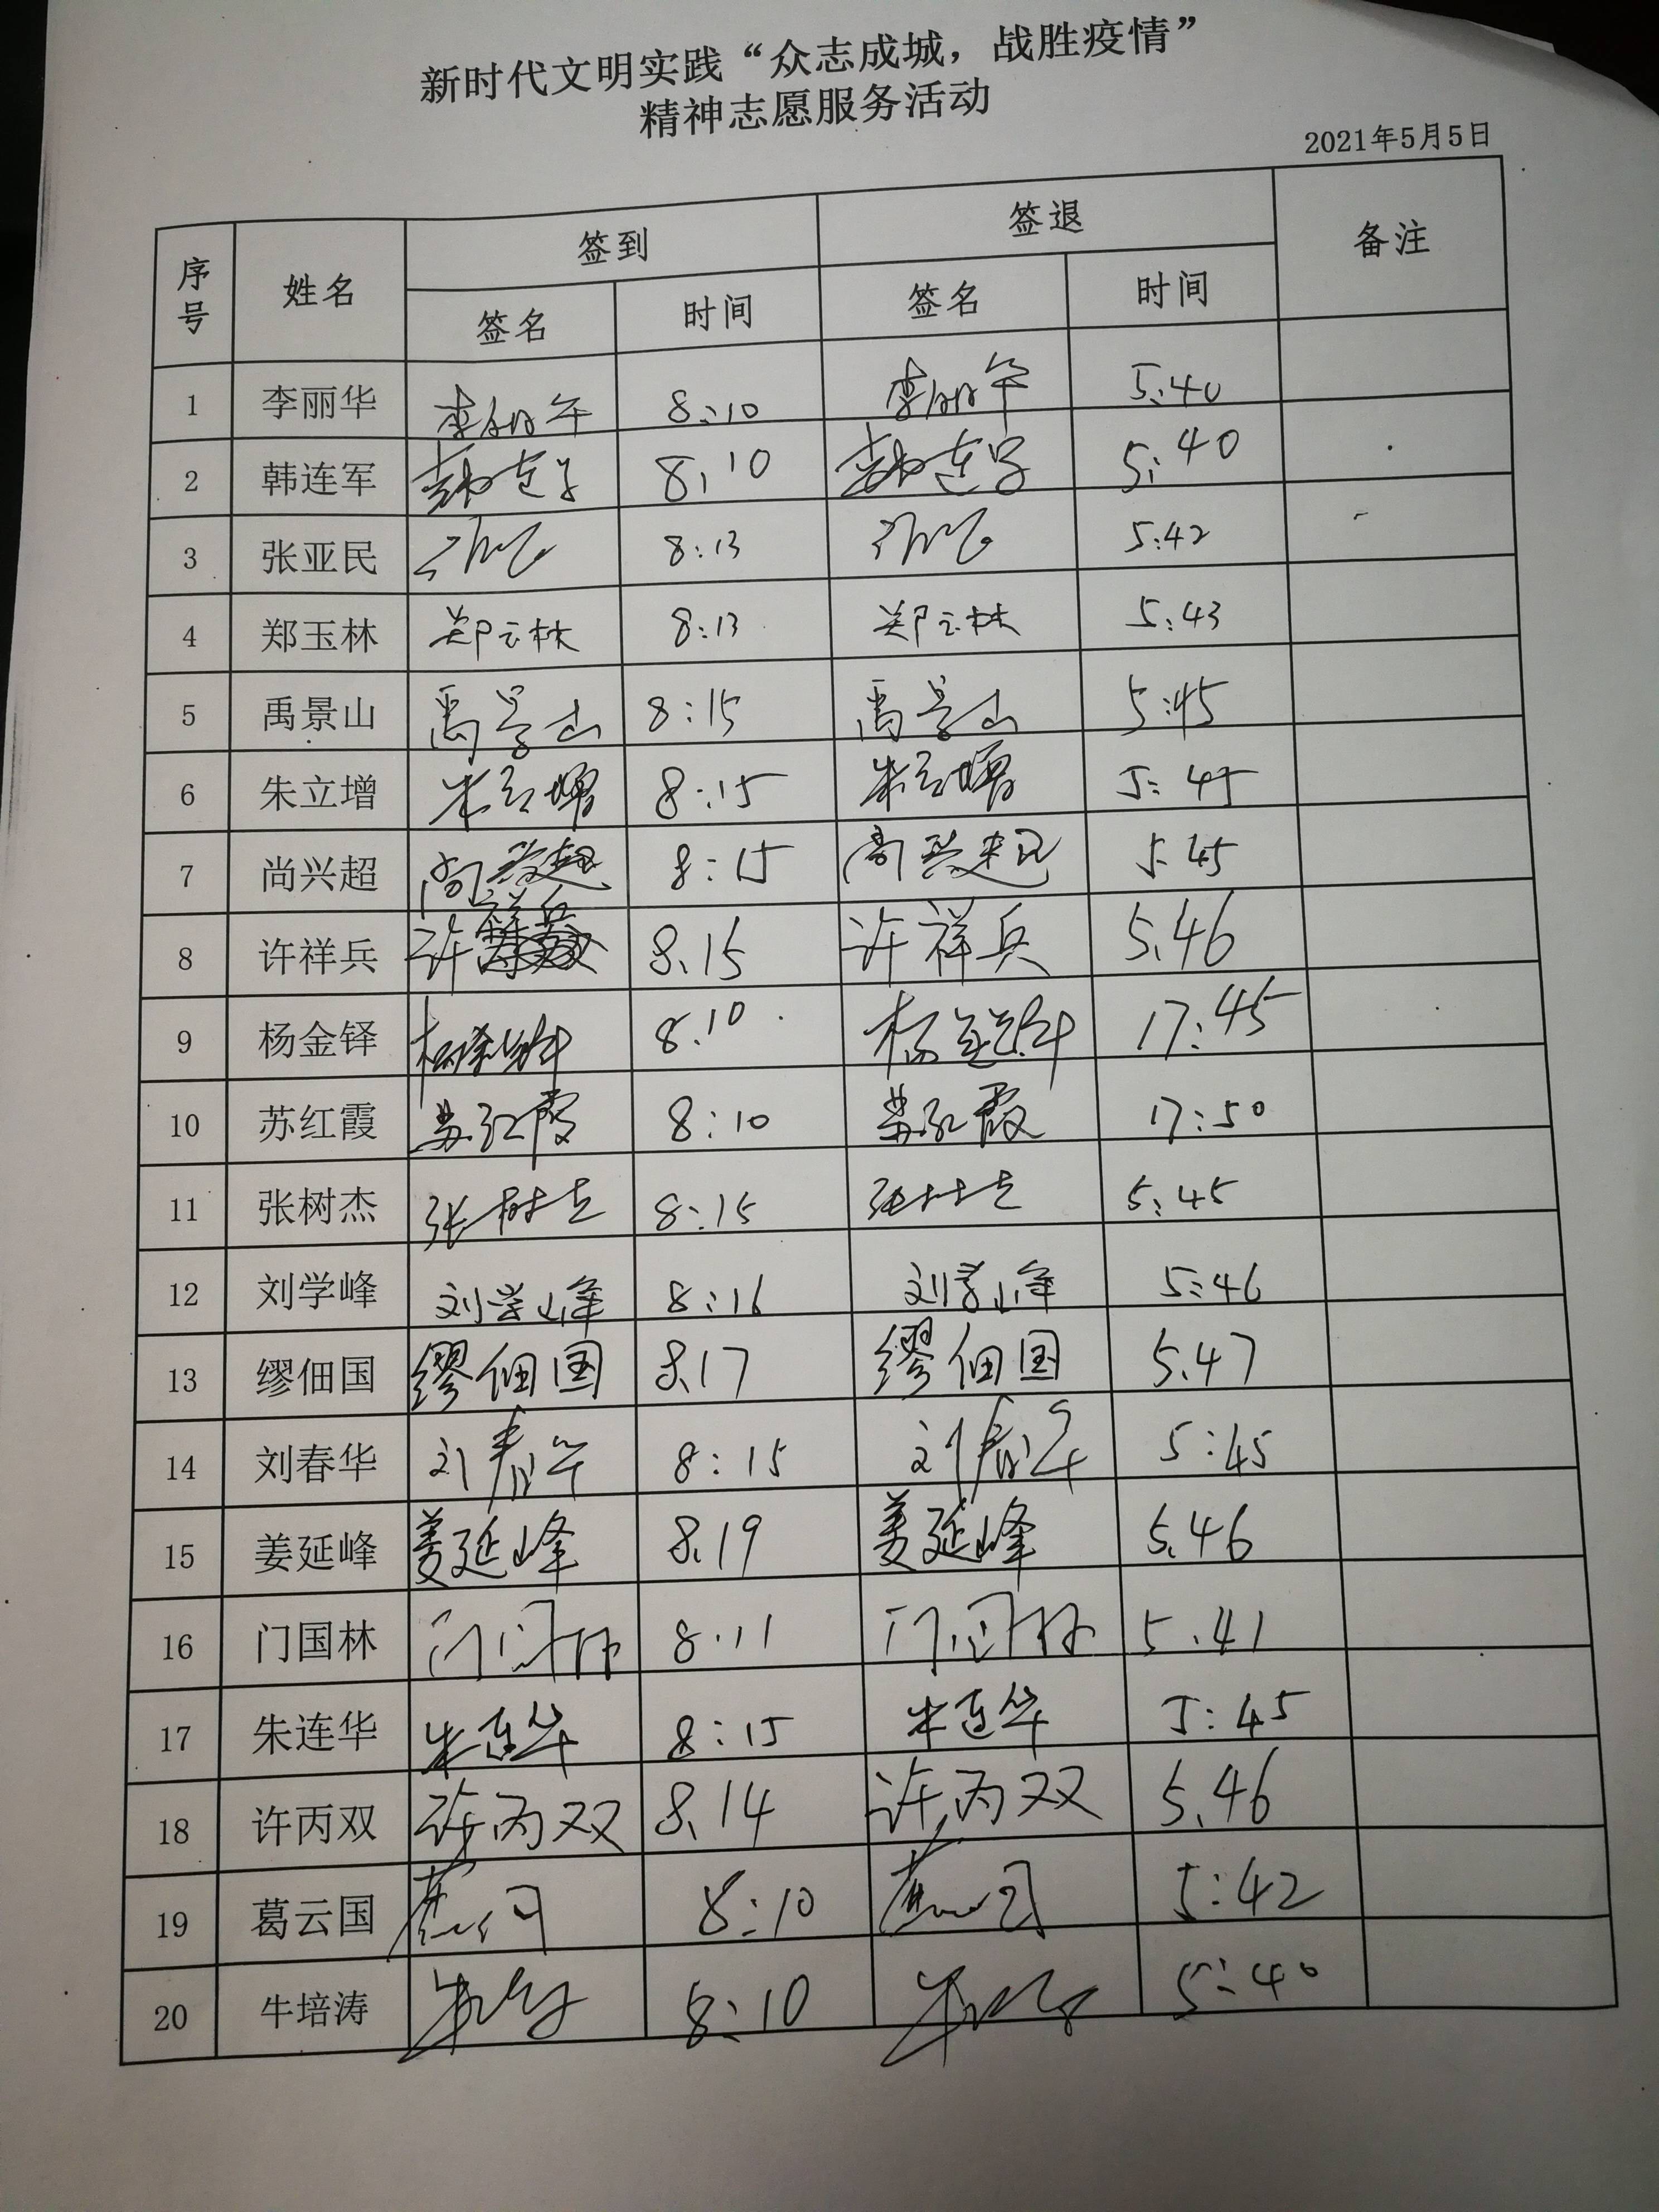 新时代文明实践“众志成城，战胜疫情”
精神志愿服务活动
2021年5月5日
序号 姓名 签到 签退 备注
签名 时间 签名 时间
1 李丽华 李丽华 8:10 李丽华 5:40
2 韩连军 韩连军 8:10 韩连军 5:40
3 张亚民 8:13 5:42
4 郑玉林 郑玉林 8:13 郑玉林 5:43
5 禹景山 禹景山 8:15 禹景山 5:45
6 朱立增 朱立增 8:15 朱立增 5:45
7 尚兴超 尚兴超 8:15 尚兴超 5:45
8 许祥兵 许祥兵 8.15 许祥兵 5.46
9 杨金铎 杨金铎 8:10 杨金铎 17:45
10 苏红霞 苏红霞 8:10 苏红霞 17:50
11 张树杰 张树杰 8:15 张树杰 5:45
12 刘学峰 刘学峰 8:16 刘学峰 5:46
13 缪佃国 缪佃国 8.17 缪佃国 5.47
14 刘春华 刘春华 8:15 刘春华 5:45
15 姜延峰 姜延峰 8.19 姜延峰 5.46
16 门国林 门国林 8.11 门国林 5.41
17 朱连华 朱连华 8:15 朱连华 5:45
18 许丙双 许丙双 8.14 许丙双 5.46
19 葛云国 葛云国 8:10 葛云国 5:42
20 牛培涛 8:10 5:40